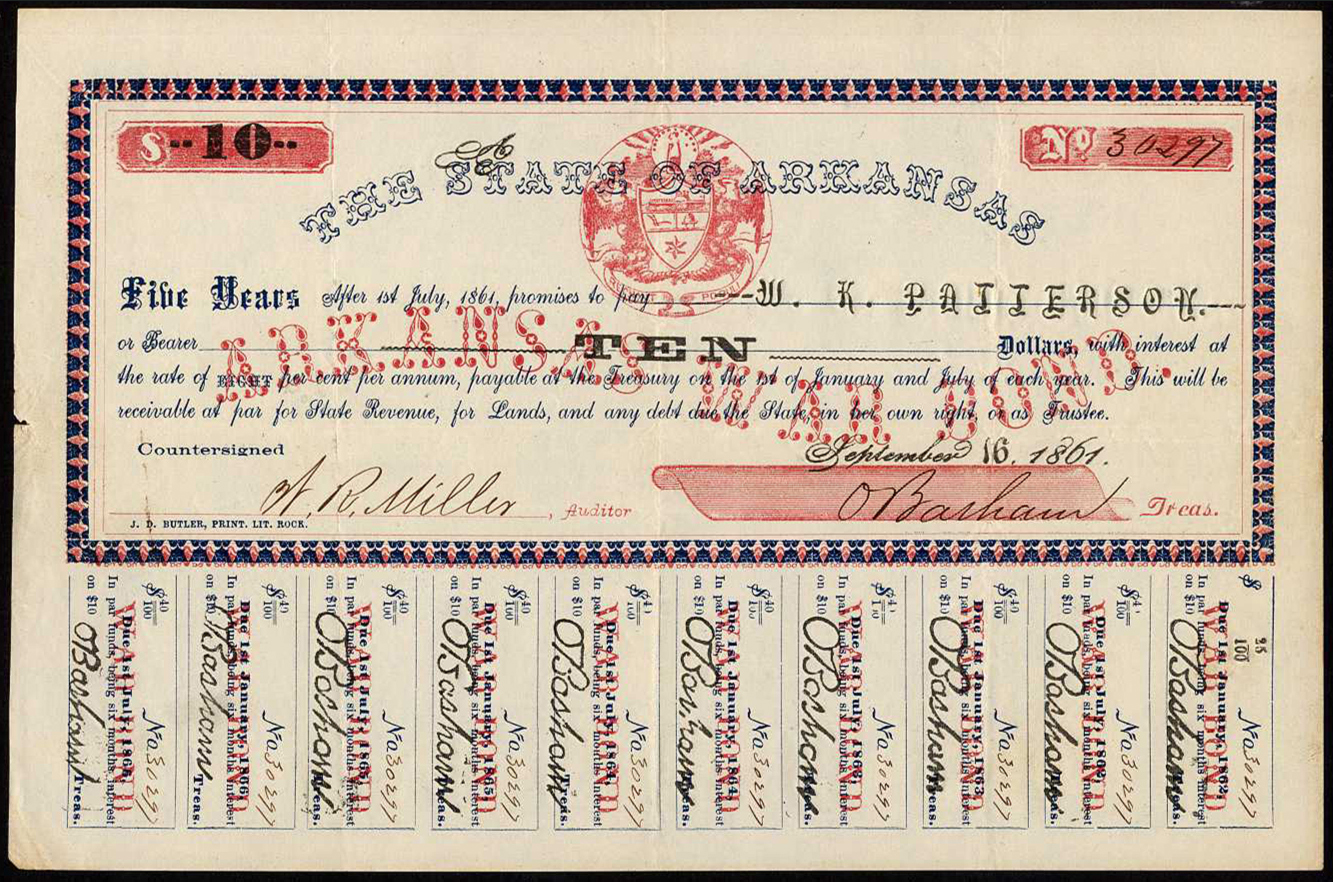 $ --10-- Nº 30297
THE STATE OF ARKANSAS
Five Years After 1st July, 1861, promises to pay ----W. K. PATTERSON.---
or Bearer TEN Dollars, with interest at
the rate of EIGHT per cent per annum, payable at the Treasury on the 1st of January and July of each year. This will be
receivable at par for State Revenue, for Lands, and any debt due the State, in her own right, or as Trustee.
ARKANSAS WAR BOND
Countersigned September 16, 1861.
W. R. Miller, Auditor O Basham Treas.
J. D. BUTLER, PRINT. LIT. ROCK.
$40/100 No 30297
WAR BOND
Due 1st July, 1866,
In par funds, being six months interest
on $10 O Basham Treas.
$40/100 No 30297
WAR BOND
Due 1st January, 1866,
In par funds, being six months interest
on $10 O Basham Treas.
$40/100 No 30297
WAR BOND
Due 1st July, 1865,
In par funds, being six months interest
on $10 O Basham Treas.
$40/100 No 30297
WAR BOND
Due 1st January, 1865,
In par funds, being six months interest
on $10 O Basham Treas.
$40/100 No 30297
WAR BOND
Due 1st July, 1864,
In par funds, being six months interest
on $10 O Basham Treas.
$40/100 No 30297
WAR BOND
Due 1st January, 1864,
In par funds, being six months interest
on $10 O Basham Treas.
$40/100 No 30297
WAR BOND
Due 1st July, 1863,
In par funds, being six months interest
on $10 O Basham Treas.
$40/100 No 30297
WAR BOND
Due 1st January, 1863
In par funds, being six months interest
on $10 O Basham Treas.
$40/100 No 30297
WAR BOND
Due 1st July, 1862,
In par funds, being six months interest
on $10 O Basham Treas.
$ 25/100 No 30297
WAR BOND
Due 1st January, 1862,
In par funds, being six months interest
on $10 O Basham Treas.